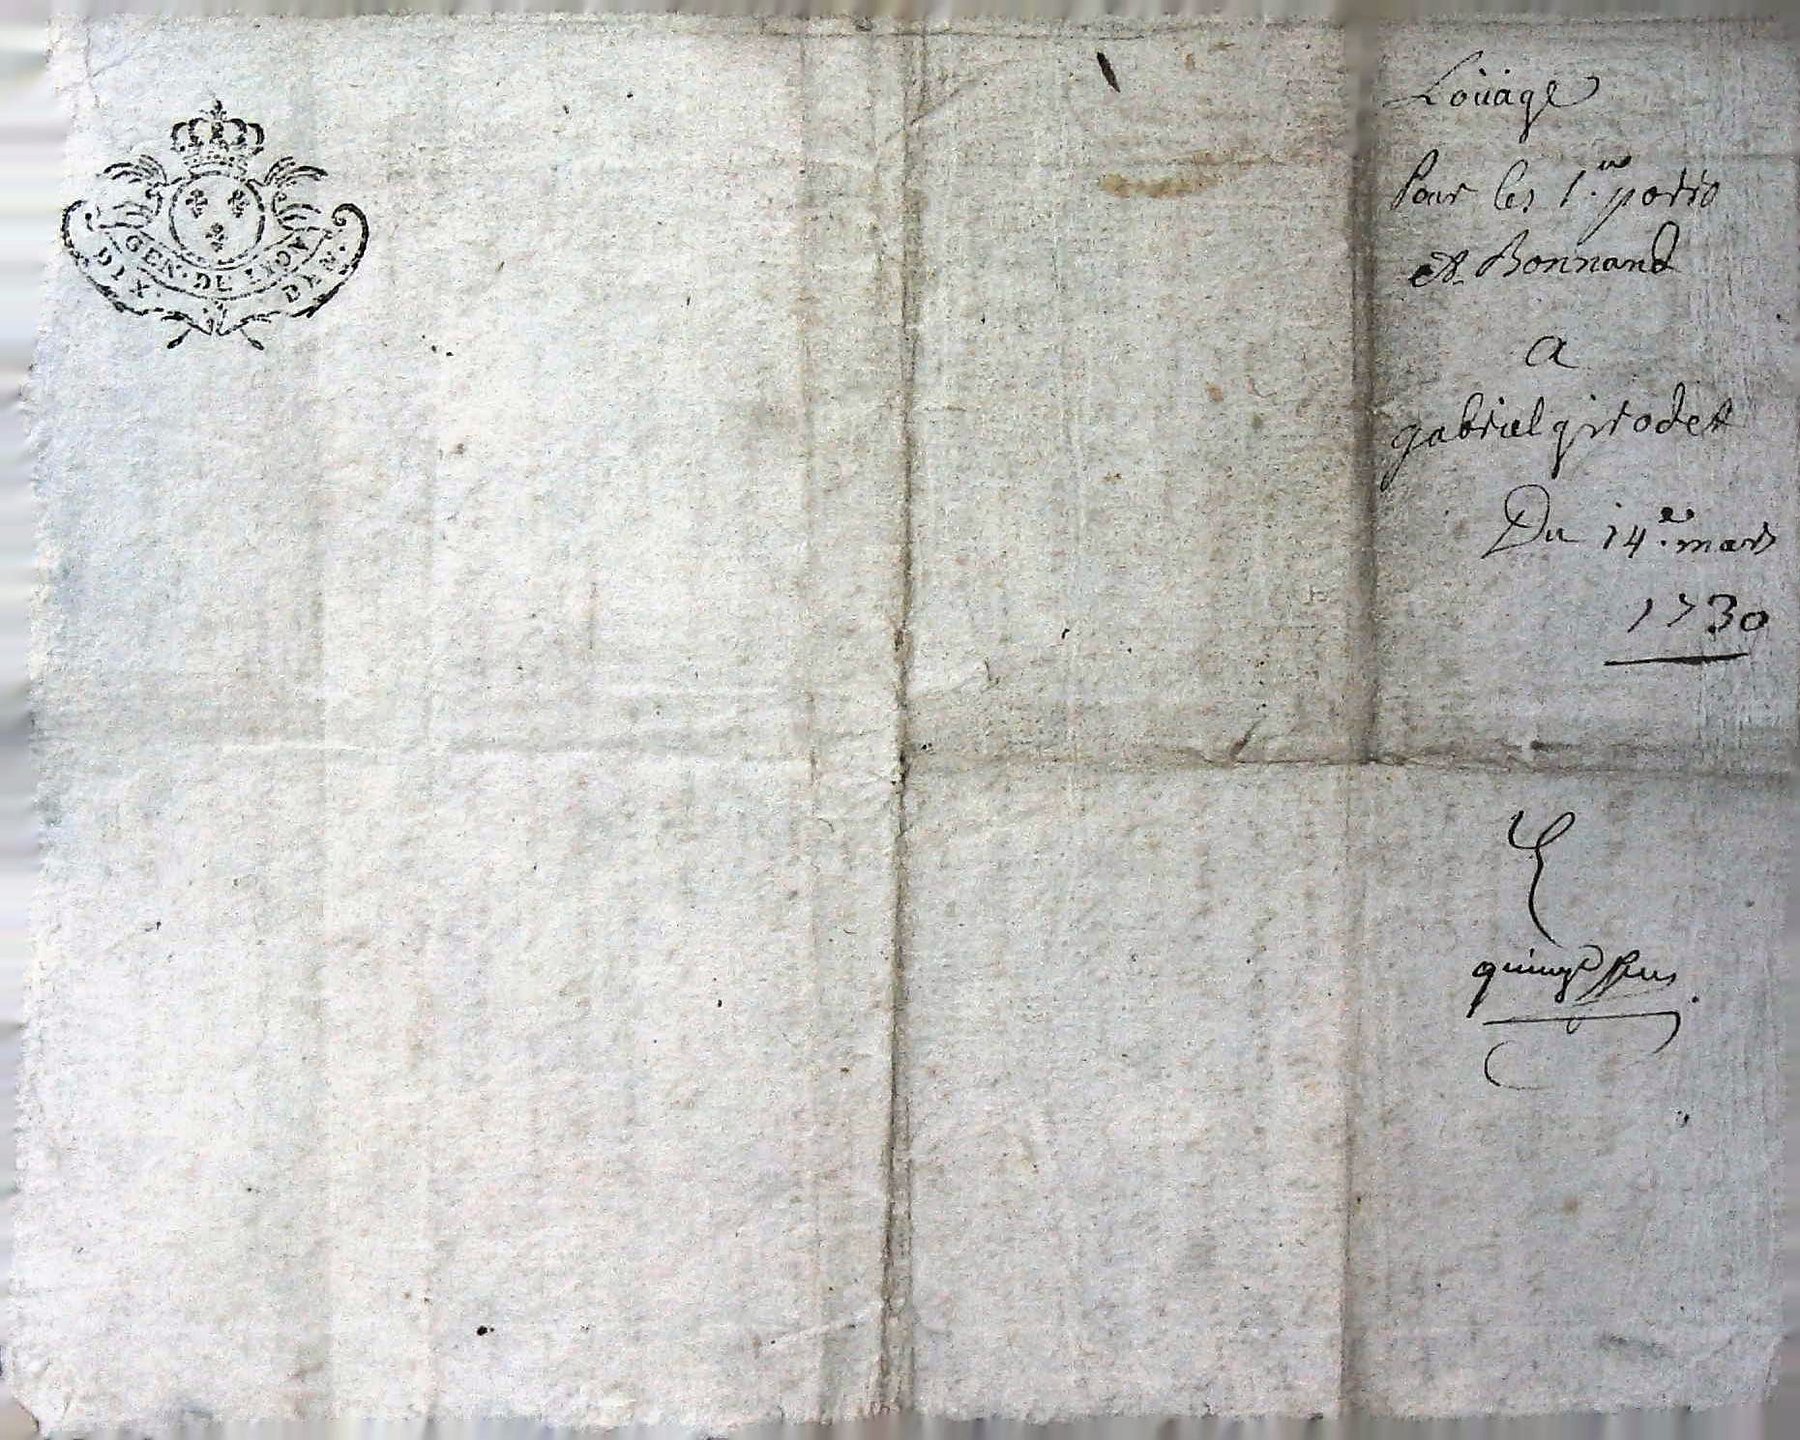 GEN·DE LION
DIX· DEN·
Loüage
Pour les 1.rs porio
et Bonnand
a
gabriel girodet
Du 14.e mars
1730
quinze sous